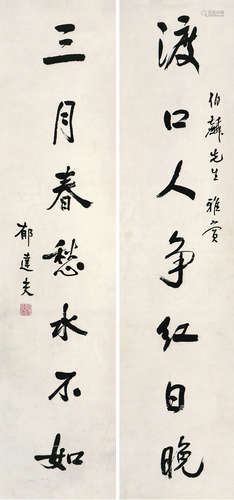 渡口人争红日晚
伯麟先生雅赏
三月春愁水不如
郁達夫